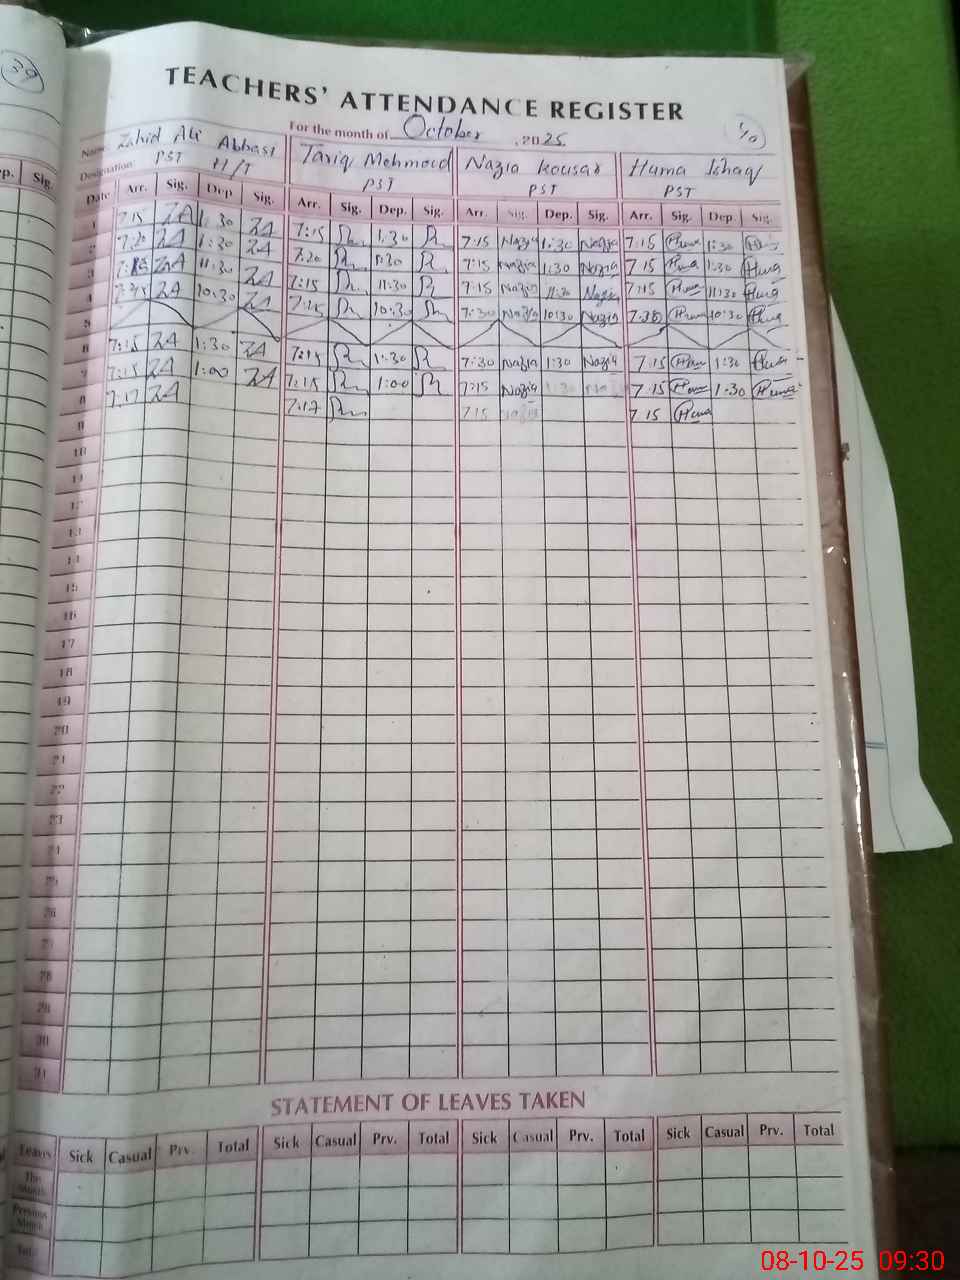 39
TEACHERS' ATTENDANCE REGISTER
For the month of October, 2025.
Name Zahid Ali Abbasi Tariq Mehmood Nazia Kousar Huma Ishaq
Designation: PST H/T PST PST PST
p. Sig. Date Arr. Sig. Dep Sig. Arr. Sig. Dep. Sig. Arr. Sig. Dep. Sig. Arr. Sig. Dep. Sig.
1 7:15 ZA 1:30 ZA 7:15 1:30 7:15 Nazia 1:30 Nazia 7:15 Huma 1:30 Huma
2 7:20 ZA 1:30 ZA 7:20 1:30 7:15 Nazia 1:30 Nazia 7:15 Huma 1:30 Huma
3 ZA 11:30 ZA 7:15 11:30 7:15 Nazia 11:30 Nazia 7:15 Huma 11:30 Huma
4 ZA 10:30 ZA 10:30 7:30 Nazia 10:30 Nazia 7:30 Huma 10:30 Huma
5
6 7:15 ZA 1:30 ZA 7:15 1:30 7:30 Nazia 1:30 Nazia 7:15 Huma 1:30 Huma
7 7:15 ZA 1:00 ZA 7:15 1:00 7:15 Nazia 1:30 7:15 Huma 1:30 Huma
8 7:17 ZA 7:17 7:15 Nazia 7:15 Huma
9
10
11
12
13
14
15
16
17
18
19
20
21
22
23
24
25
26
27
28
29
30
31
STATEMENT OF LEAVES TAKEN
Leaves Sick Casual Prv. Total Sick Casual Prv. Total Sick Casual Prv. Total Sick Casual Prv. Total
This Month
Previous Month
Total
08-10-25 09:30